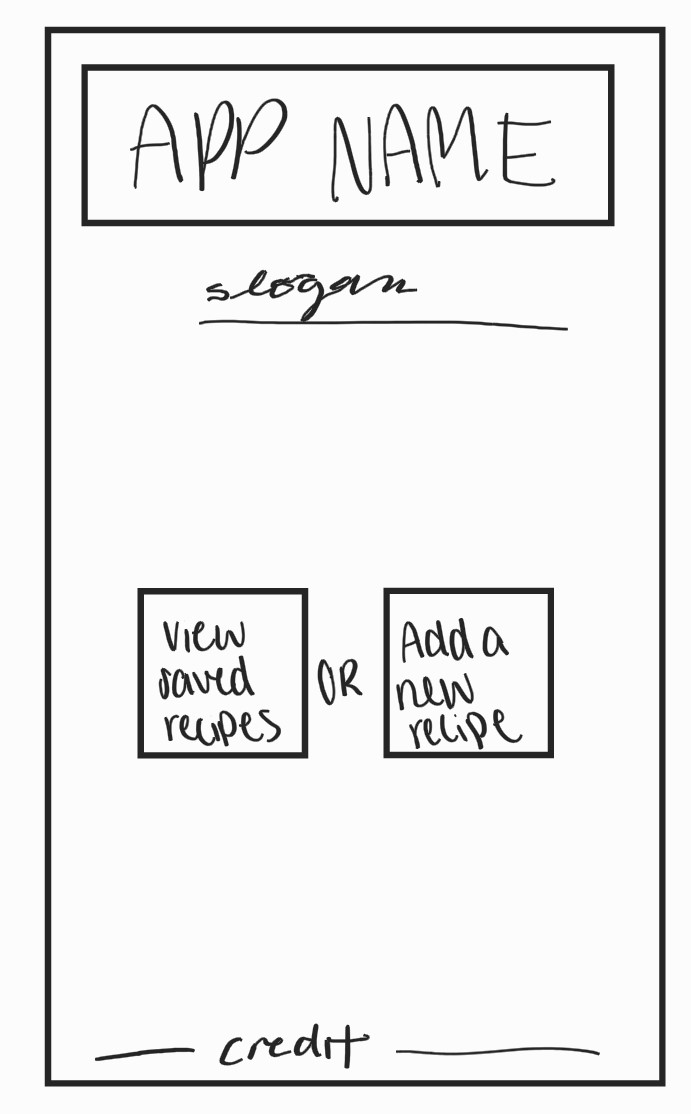 APP NAME
slogan
view
saved
recipes
OR
Add a
new
recipe
credit